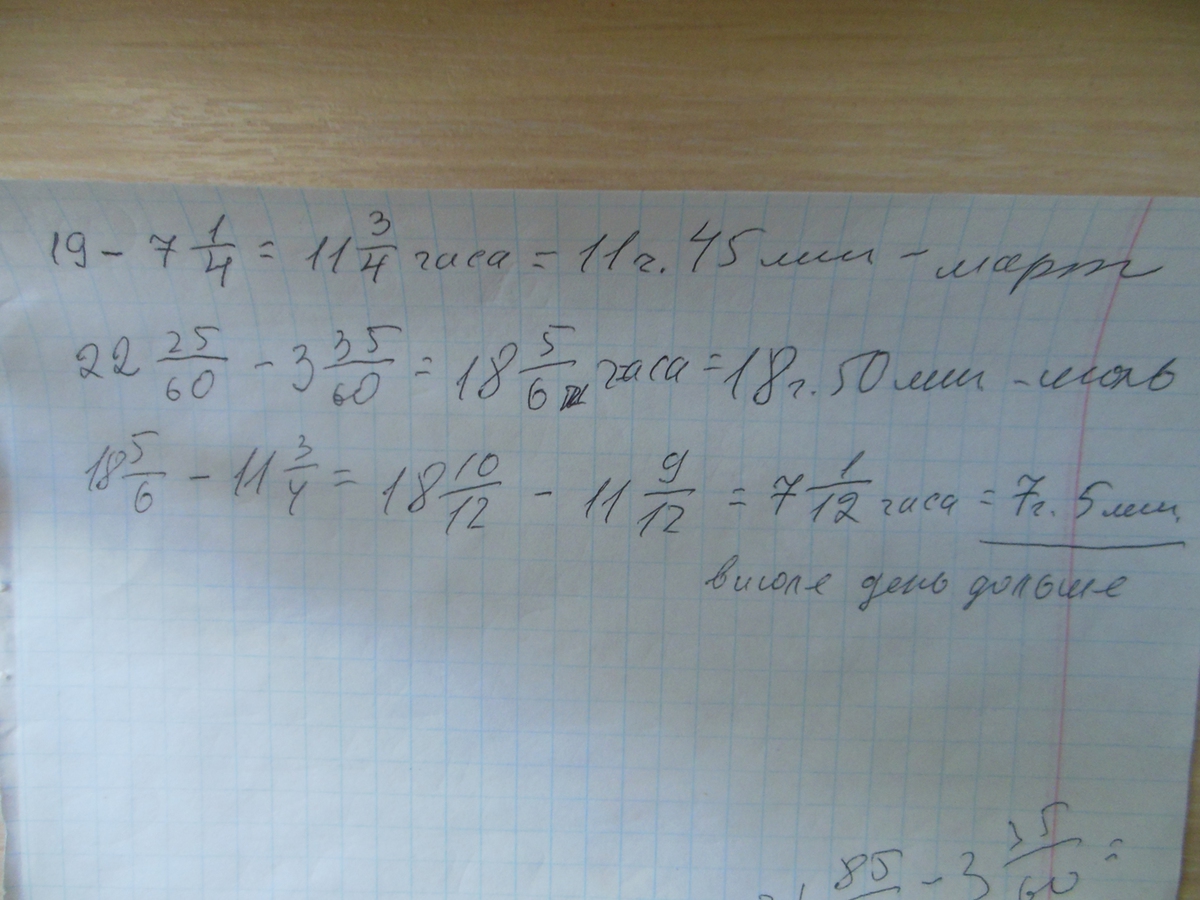 19 - 7 1/4 = 11 3/4 часа = 11 г. 45 мин - март
22 25/60 - 3 35/60 = 18 5/6 часа = 18 г. 50 мин - июль
18 5/6 - 11 3/4 = 18 10/12 - 11 9/12 = 7 1/12 часа = 7 г. 5 мин.
в июле день дольше
85 - 3 35/60 =